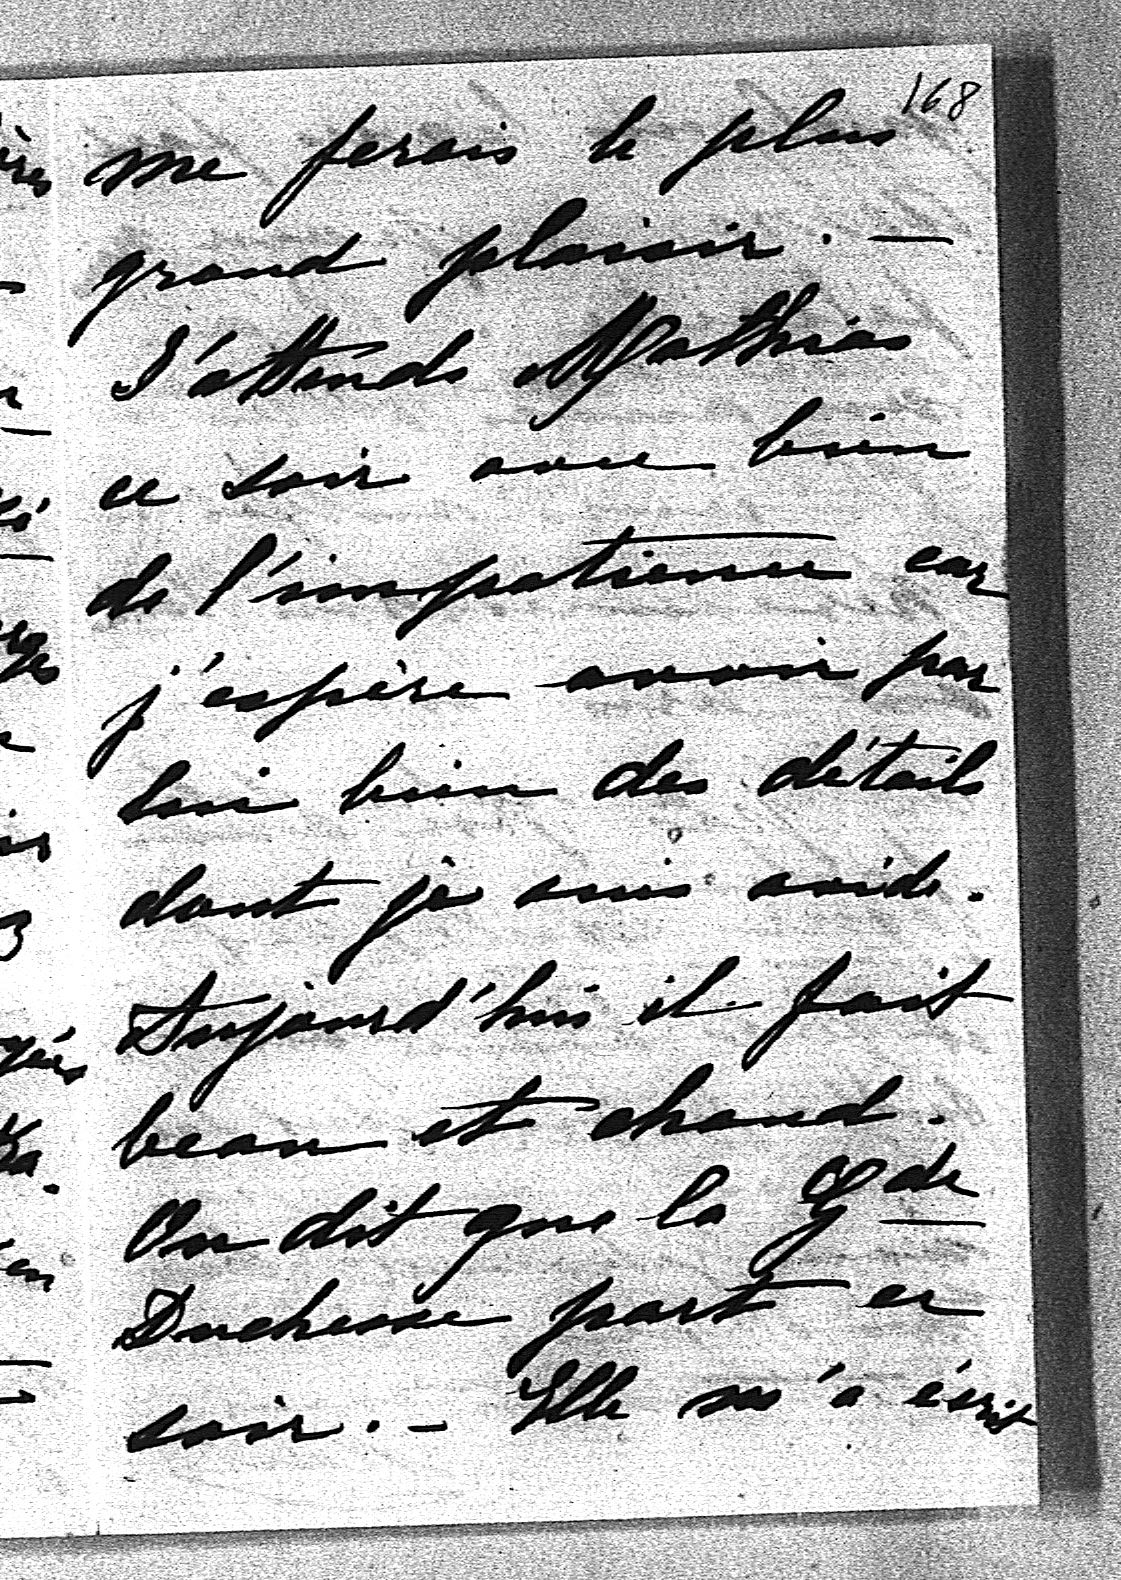 168
me ferais le plus
grand plaisir. —
J'attends Mathias
ce soir avec bien
de l'impatience car
j'espère avoir par
lui bien des détails
dont je suis avide.
Aujourd'hui il fait
beau et chaud.
On dit que la Gde
Duchesse part ce
soir. — Elle m'a écrit